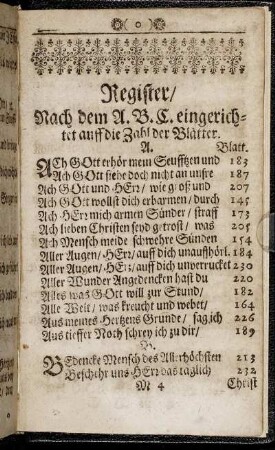 Register/
Nach dem A. B. C. eingerich-
tet auff die Zahl der Blätter.
A. Blatt.
ACh GOtt erhör mein Seufftzen und 183
Ach GOtt siehe doch nicht an unsre 187
Ach GOtt und HErr/ wie groß und 207
Ach GOtt wollst dich erbarmen/ durch 145
Ach HErr mich armen Sünder/ straff 173
Ach lieben Christen seyd getrost/ was 205
Ach Mensch meide schwehre Sünden 154
Aller Augen/ HErr/ auff dich unauffhörl. 184
Aller Augen/ HErr/ auff dich unverrucket 230
Aller Wunder Angedencken hast du 220
Alles was GOtt will zur Stund/ 182
Alle Welt/ was kreucht und webet/ 164
Aus meines Hertzens Grunde/ sag ich 226
Aus tieffer Noth schrey ich zu dir/ 189
B.
BEdencke Mensch des Allerhöchsten 213
Beschehr uns HErr das täglich 232
M 4 Christ